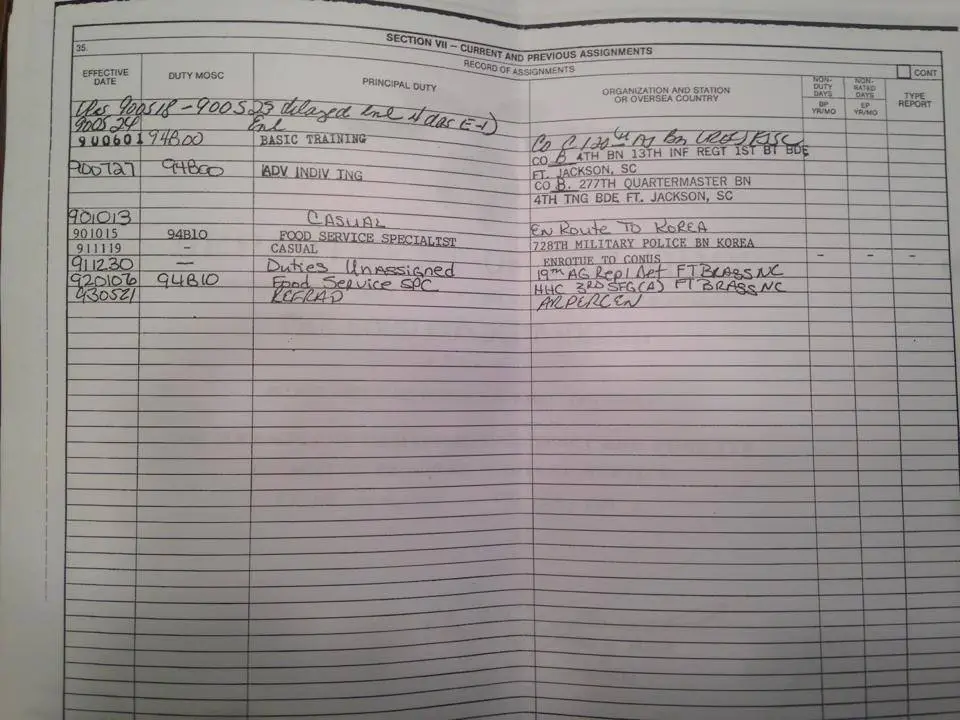 SECTION VII – CURRENT AND PREVIOUS ASSIGNMENTS
35.
RECORD OF ASSIGNMENTS
CONT
EFFECTIVE DATE
DUTY MOSC
PRINCIPAL DUTY
ORGANIZATION AND STATION OR OVERSEA COUNTRY
NON-DUTY DAYS
NON-RATED DAYS
TYPE REPORT
BP YR/MO
EP YR/MO
900518 - 900523 delayed enl
900524 Enl
Co C 120 AG Bn
900601 94B00 BASIC TRAINING
CO B 4TH BN 13TH INF REGT 1ST BT BDE
FT. JACKSON, SC
900727 94B00 ADV INDIV TNG
CO B. 277TH QUARTERMASTER BN
4TH TNG BDE FT. JACKSON, SC
901013 CASUAL En Route To KOREA
901015 94B10 FOOD SERVICE SPECIALIST 728TH MILITARY POLICE BN KOREA
911119 - CASUAL ENROTUE TO CONUS - - -
911230 — Duties Unassigned 19TH AG Repl Det FT BRAGG NC
920106 94B10 Food Service SPC HHC 3RD SFG(A) FT BRAGG NC
930521 REFRAD ARPERCEN